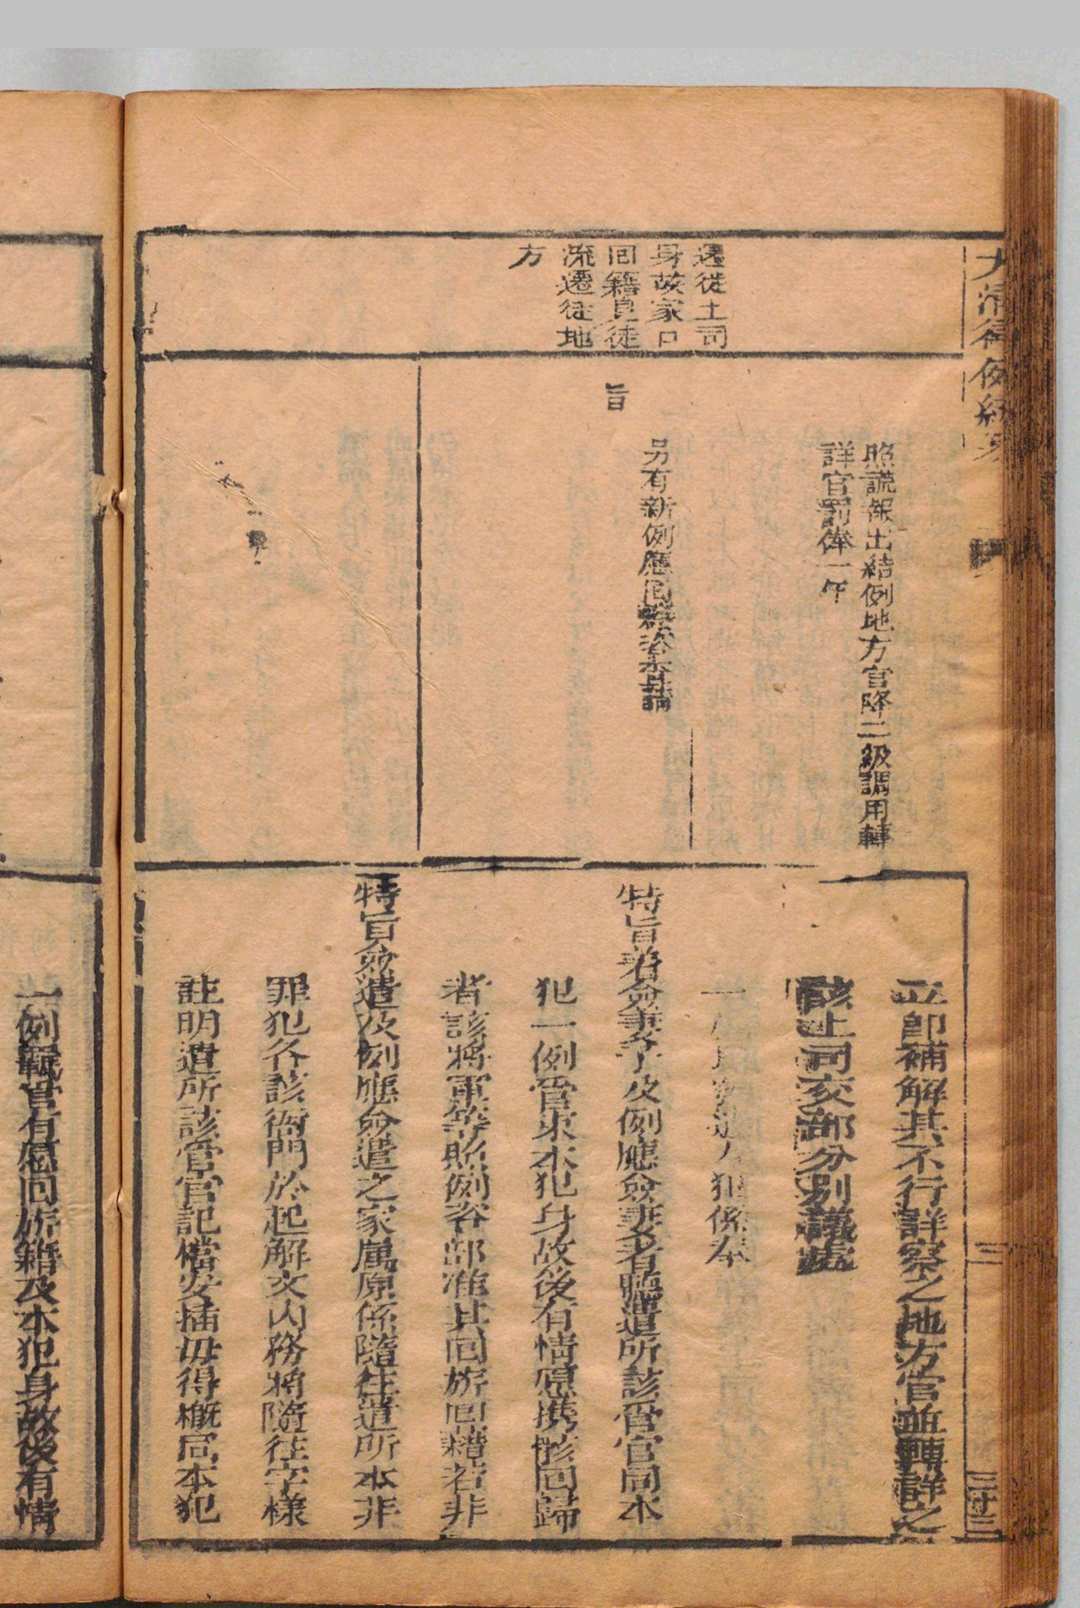 遷徙土司
身故家口
回籍見徒
流遷徙地
方
照謊報出結例地方官降二級調用轉
詳官罰俸一年
另有新例應回籍咨本具請
旨
立即補解其不行詳察之地方官並轉詳之
該上司交部分別議處
一
犯係奉
特旨著僉妻子及例應僉妻者聽遣所該管官同本
犯一例管束本犯身故後有情愿携骸回歸
者該將軍等照例咨部准其回旂回籍若非
特旨僉遣及例應僉遣之家属原係隨往遣所本非
罪犯各該衙門於起解文内務將隨往字樣
註明遣所該管官記檔安插毋得槪同本犯
一例羈管有愿回旂籍及本犯身故後有情